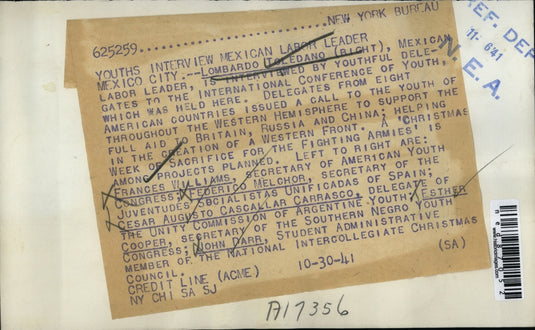 NEW YORK BUREAU
625259
REF. DEP
11-6 41
N. E. A.
YOUTHS INTERVIEW MEXICAN LABOR LEADER
MEXICO CITY.--LOMBARDO TOLEDANO (RIGHT), MEXICAN
LABOR LEADER, IS INTERVIEWED BY YOUTHFUL DELE-
GATES TO THE INTERNATIONAL CONFERENCE OF YOUTH,
WHICH WAS HELD HERE. DELEGATES FROM EIGHT
AMERICAN COUNTRIES ISSUED A CALL TO THE YOUTH OF
THROUGHOUT THE WESTERN HEMISPHERE TO SUPPORT THE
FULL AID TO BRITAIN, RUSSIA AND CHINA; HELPING
IN THE CREATION OF A WESTERN FRONT. A 'CHRISTMAS
WEEK OF SACRIFICE FOR THE FIGHTING ARMIES' IS
AMONG PROJECTS PLANNED. LEFT TO RIGHT ARE:
FRANCES WILLIAMS, SECRETARY OF AMERICAN YOUTH
CONGRESS; FEDERICO MELCHOR, SECRETARY OF THE
JUVENTUDES SOCIALISTAS UNIFICADAS OF SPAIN;
CESAR AUGUSTO CASCALLAR CARRASCO, DELEGATE OF
THE UNITY COMMISSION OF ARGENTINE YOUTH; ESTHER
COOPER, SECRETARY OF THE SOUTHERN NEGRO YOUTH
CONGRESS; JOHN DARR, STUDENT ADMINISTRATIVE
MEMBER OF THE NATIONAL INTERCOLLEGIATE CHRISTMAS
COUNCIL.
CREDIT LINE (ACME) 10-30-41 (SA)
NY CHI SA SJ
A17356